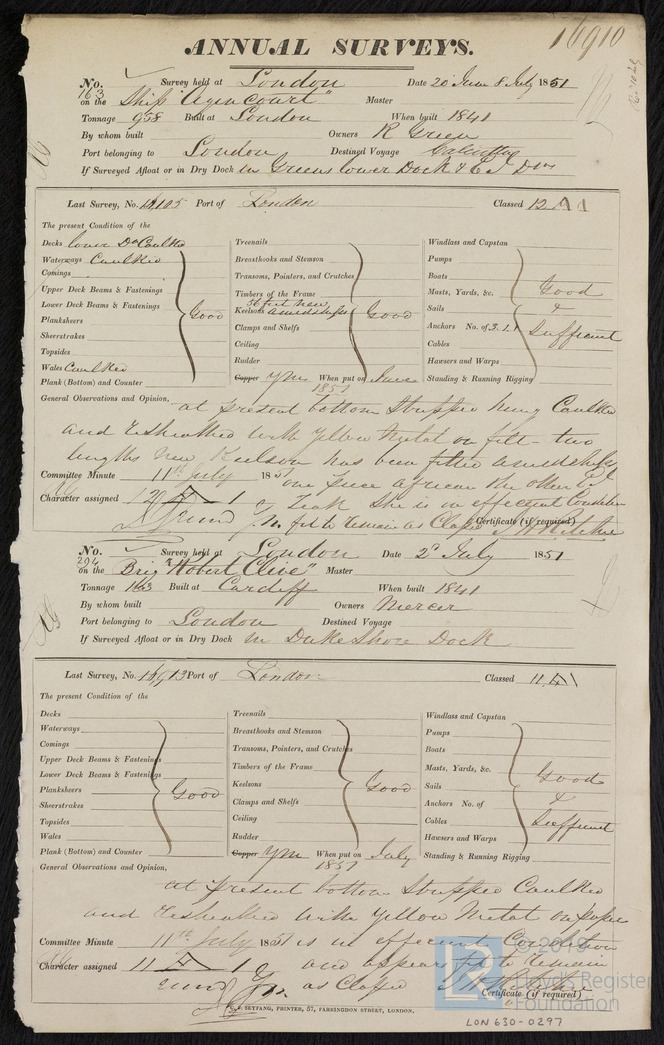 16910
ANNUAL SURVEYS.
No. 163 Survey held at London Date 20 June 8 July 1851
on the Ship "Agincourt" Master
Tonnage 958 Built at London When built 1841
By whom built Owners R Green
Port belonging to London Destined Voyage Calcutta
If Surveyed Afloat or in Dry Dock in Greens lower Dock & E I Dks
Last Survey, No. Port of London Classed 12 A 1
The present Condition of the
Decks lower Do Caulked
Waterways Caulked
Comings
Upper Deck Beams & Fastenings
Lower Deck Beams & Fastenings
Planksheers
Sheerstrakes
Topsides
Wales Caulked
Plank (Bottom) and Counter
Good
Treenails
Breasthooks and Stemson
Transoms, Pointers, and Crutches
Timbers of the Frame
Keelsons 56 feet new amidships
Clamps and Shelfs
Ceiling
Rudder
Copper YM When put on June 1851
Good
Windlass and Capstan
Pumps
Boats
Masts, Yards, &c.
Sails
Anchors No. of 3.1.1
Cables
Hawsers and Warps
Standing & Running Rigging
Good & Sufficient
General Observations and Opinion, at present bottom Stripped hung Caulked
and resheathed with yellow metal on felt – two
lengths new Keelson has been fitted amidships
Committee Minute 11th July 185 one piece African the other
Character assigned 12 A 1 Teak She is in efficient Condition
fit to remain as Classed Certificate (if required)
No. 294 Survey held at London Date 2d July 1851
on the Brig "Robert Clive" Master
Tonnage 163 Built at Cardiff When built 1841
By whom built Owners Mercer
Port belonging to London Destined Voyage
If Surveyed Afloat or in Dry Dock in Duke Shore Dock
Last Survey, No. Port of London Classed 11 A 1
The present Condition of the
Decks
Waterways
Comings
Upper Deck Beams & Fastenings
Lower Deck Beams & Fastenings
Planksheers
Sheerstrakes
Topsides
Wales
Plank (Bottom) and Counter
Good
Treenails
Breasthooks and Stemson
Transoms, Pointers, and Crutches
Timbers of the Frame
Keelsons
Clamps and Shelfs
Ceiling
Rudder
Copper YM When put on July 1851
Good
Windlass and Capstan
Pumps
Boats
Masts, Yards, &c.
Sails
Anchors No. of
Cables
Hawsers and Warps
Standing & Running Rigging
Good & Sufficient
General Observations and Opinion,
at present bottom Stripped Caulked
and resheathed with yellow Metal on paper
Committee Minute 11th July 1851 is in efficient Condition
Character assigned 11 A 1 and appears fit to remain
as Classed Certificate (if required)
SEYFANG, PRINTER, 57, FARRINGDON STREET, LONDON.
© 2019
Lloyd's Register
Foundation
LR
LON 630-0297